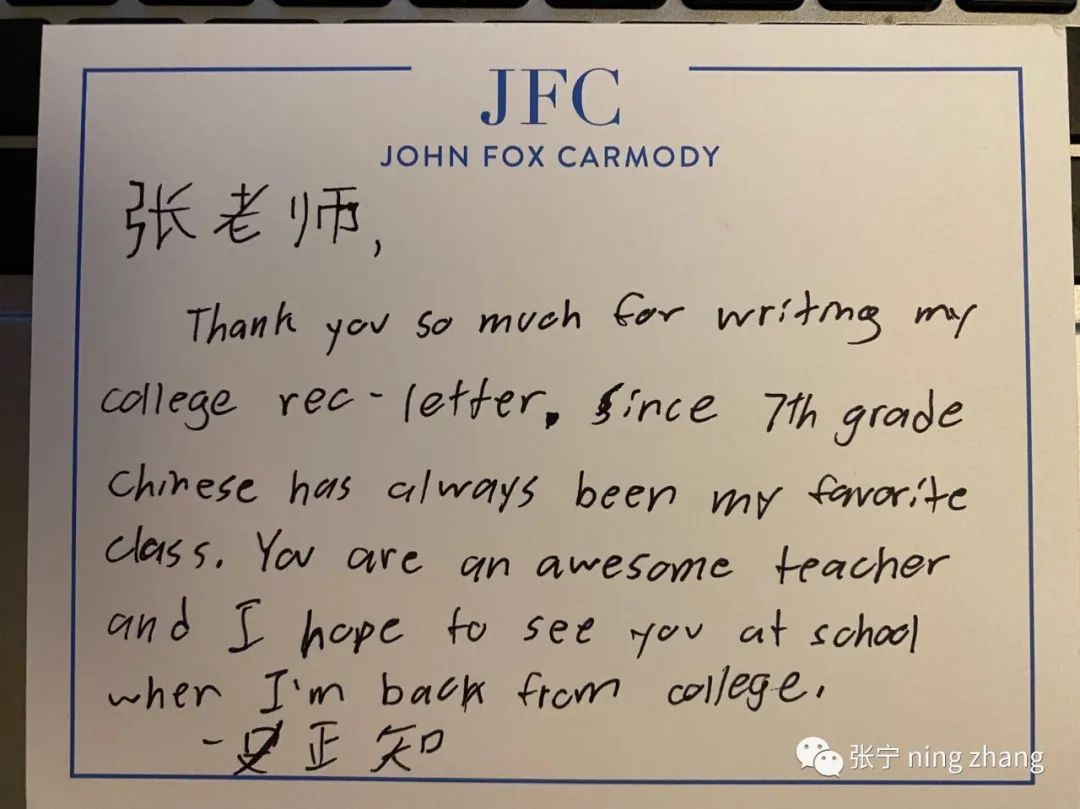 JFC
JOHN FOX CARMODY
张老师,
Thank you so much for writing my
college rec-letter. Since 7th grade
Chinese has always been my favorite
class. You are an awesome teacher
and I hope to see you at school
when I'm back from college.
- 正知
张宁 ning zhang